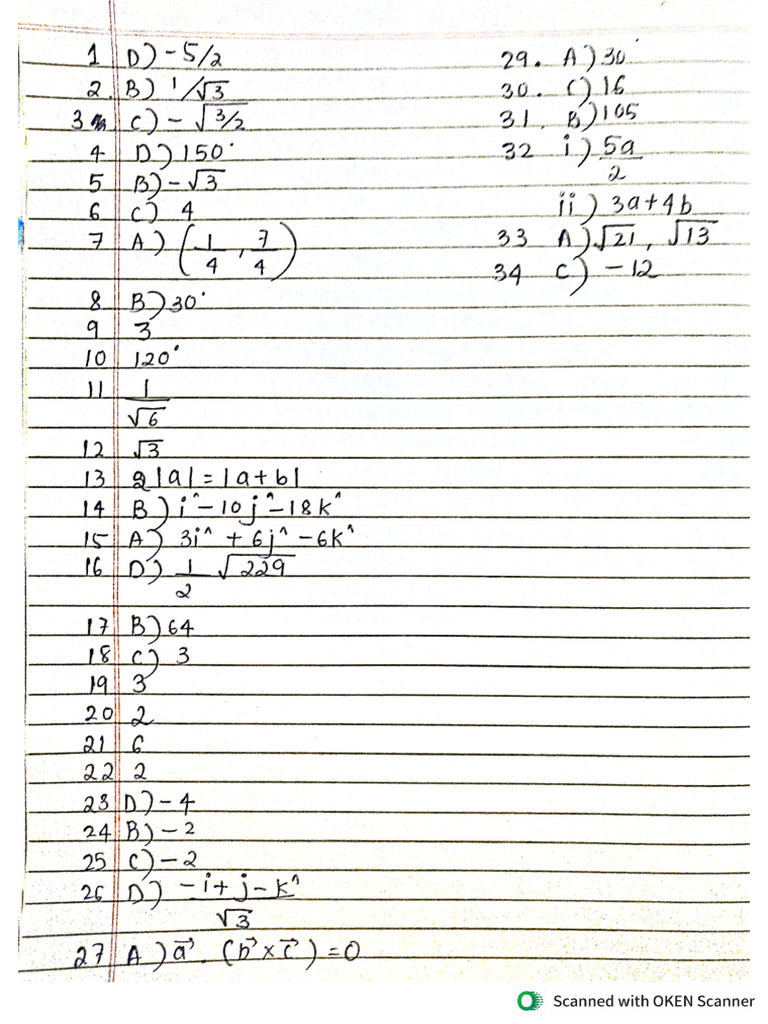 1 D) - 5/2
2. B) 1/√3
3 C) - √3/2
4 D) 150°
5 B) - √3
6 C) 4
7 A) (1/4, 7/4)
8 B) 30°
9 3
10 120°
11 1/√6
12 √3
13 2|a| = |a + b|
14 B) i^ - 10j^ - 18k^
15 A) 3i^ + 6j^ - 6k^
16 D) 1/2 √229
17 B) 64
18 C) 3
19 3
20 2
21 6
22 2
23 D) - 4
24 B) - 2
25 C) - 2
26 D) (-i + j - k^)/√3
27 A) a⃗ . (b⃗ × c⃗) = 0
29. A) 30°
30. C) 16
31. B) 105
32 i) 5a/2
ii) 3a + 4b
33 A) √21, √13
34 C) - 12
Scanned with OKEN Scanner